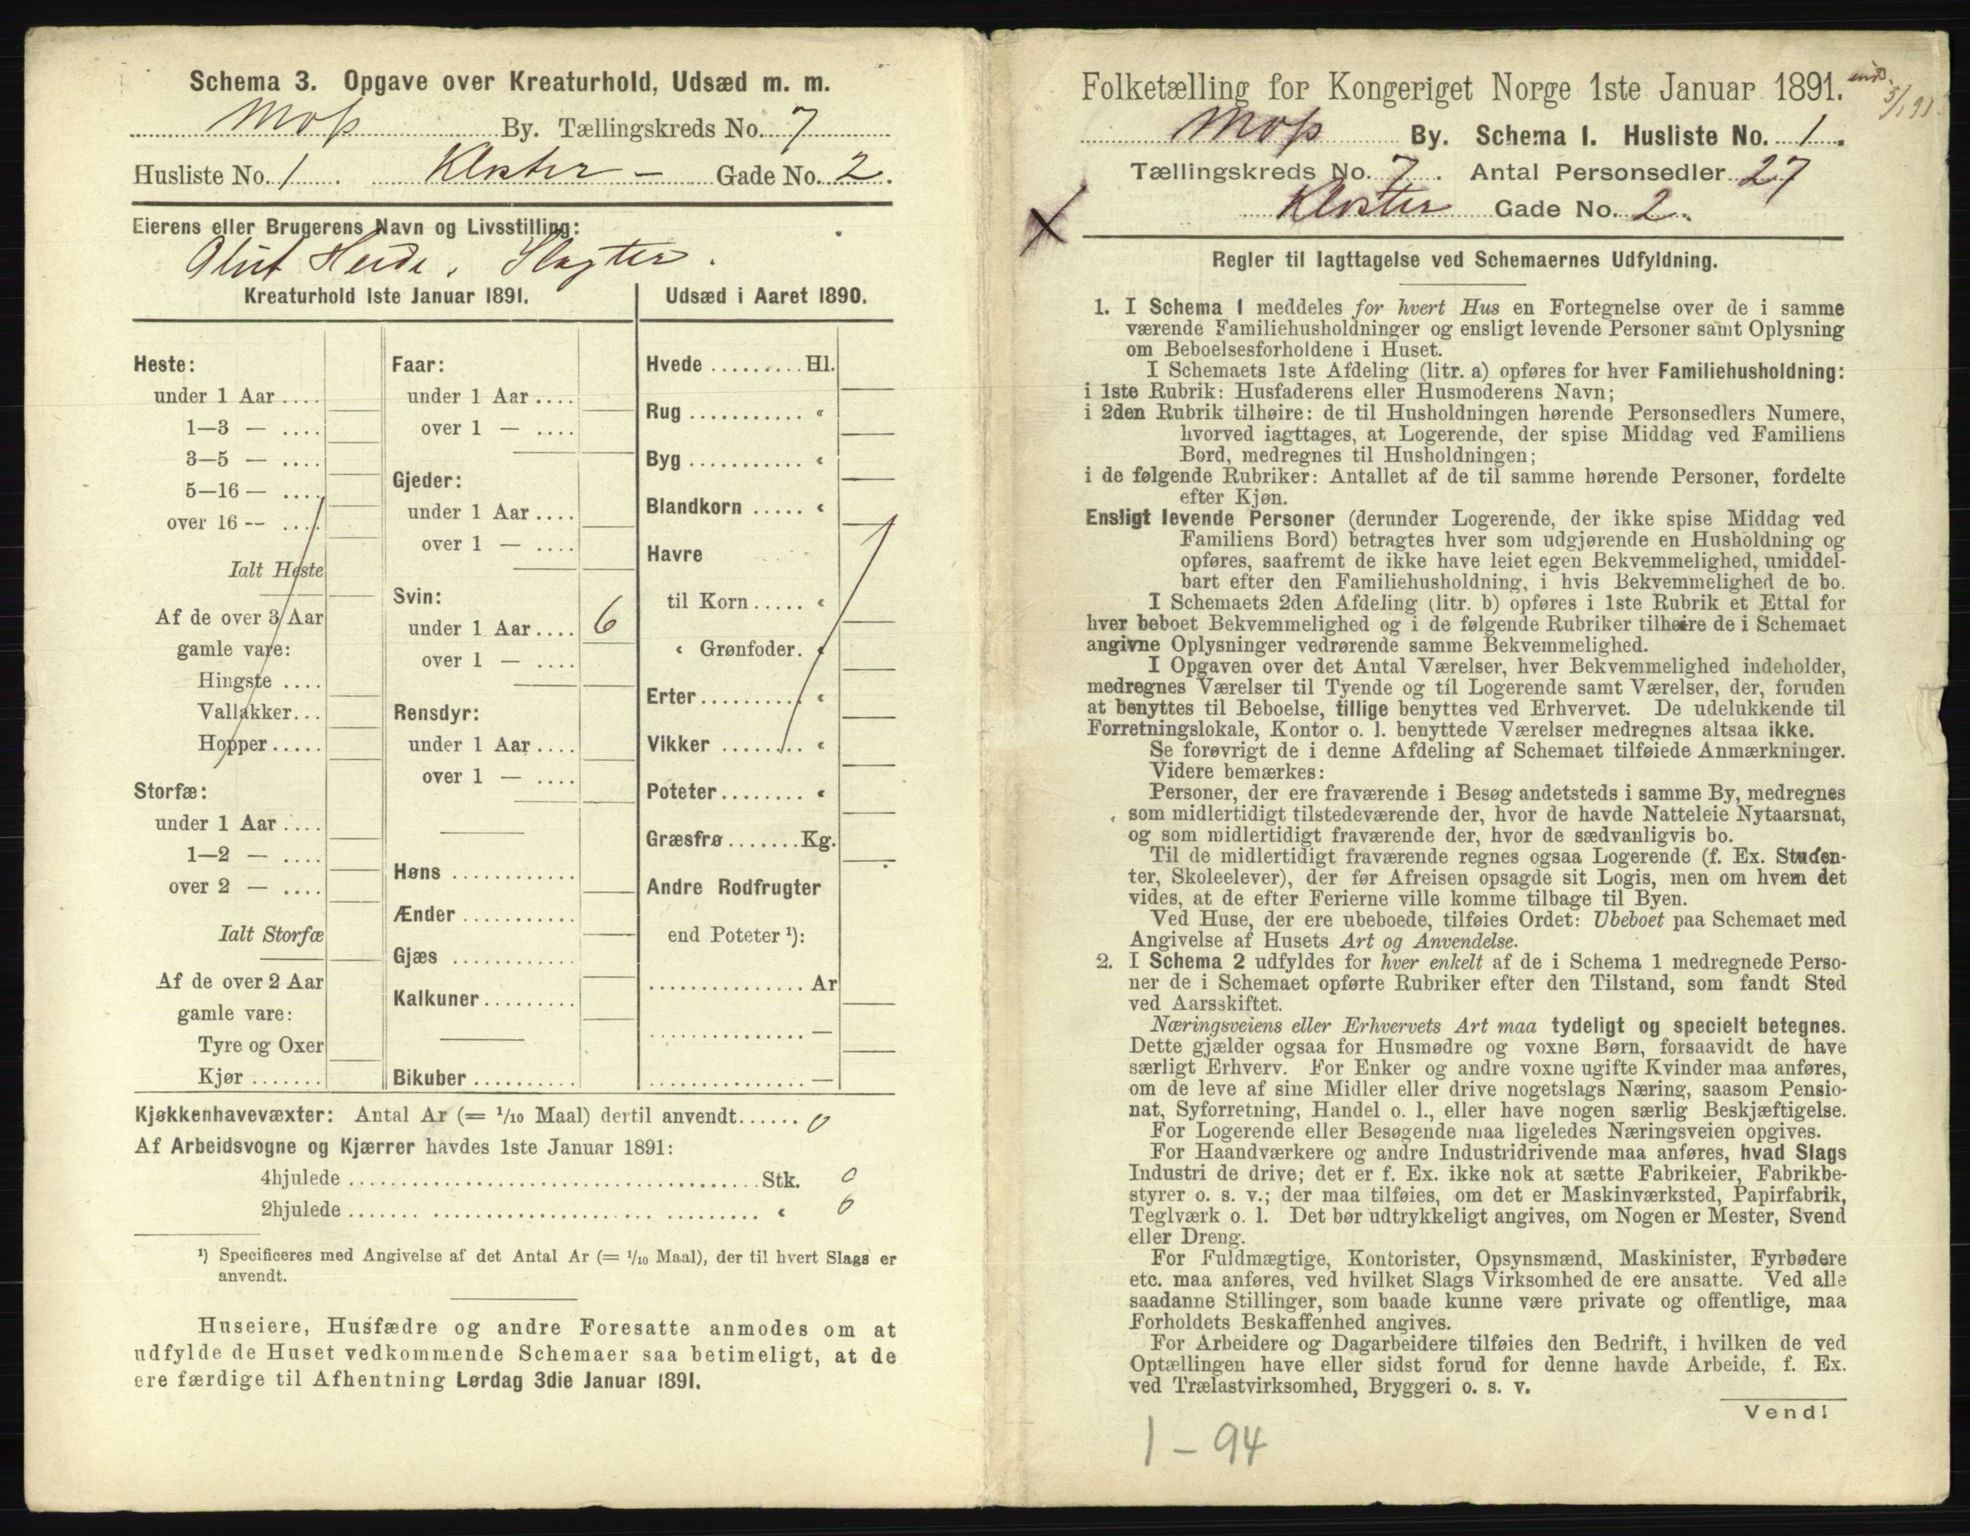 Schema 3. Opgave over Kreaturhold, Udsæd m. m.
Moss By. Tællingskreds No. 7
Husliste No. 1. Kloster – Gade No. 2.
Eierens eller Brugerens Navn og Livsstilling:
Oluf Heide, Slagter.
Kreaturhold 1ste Januar 1891.
Heste:
under 1 Aar ....
1—3 — ....
3—5 — ....
5—16 — ....
over 16 — ....
Ialt Heste
Af de over 3 Aar
gamle vare:
Hingste ....
Vallakker...
Hopper.....
Storfæ:
under 1 Aar ....
1—2 — ....
over 2 — ....
Ialt Storfæ
Af de over 2 Aar
gamle vare:
Tyre og Oxer
Kjør .......
Faar:
under 1 Aar ....
over 1 — ....
Gjeder:
under 1 Aar ....
over 1 — ....
Svin:
under 1 Aar .... 6
over 1 — ....
Rensdyr:
under 1 Aar ....
over 1 — ....
Høns ............
Ænder ...........
Gjæs ............
Kalkuner.........
Bikuber ..........
Udsæd i Aaret 1890.
Hvede .......... Hl.
Rug ........... “
Byg ........... “
Blandkorn ..... “
Havre
til Korn ..... “
“ Grønfoder. “
Erter.......... “
Vikker ........ “
Poteter........ “
Græsfrø ....... Kg.
Andre Rodfrugter
end Poteter ¹):
............... Ar
............... —
............... —
Kjøkkenhavevæxter: Antal Ar (= 1/10 Maal) dertil anvendt...... 0
Af Arbeidsvogne og Kjærrer havdes 1ste Januar 1891:
4hjulede ........................................ Stk. 0
2hjulede ........................................ “ 0
¹) Specificeres med Angivelse af det Antal Ar (= 1/10 Maal), der til hvert Slags er
anvendt.
Huseiere, Husfædre og andre Foresatte anmodes om at
udfylde de Huset vedkommende Schemaer saa betimeligt, at de
ere færdige til Afhentning Lørdag 3die Januar 1891.
Folketælling for Kongeriget Norge 1ste Januar 1891.
5/1 91.
Moss By. Schema 1. Husliste No. 1.
Tællingskreds No. 7. Antal Personsedler 27
Kloster Gade No. 2.
X
Regler til Iagttagelse ved Schemaernes Udfyldning.
1. I Schema 1 meddeles for hvert Hus en Fortegnelse over de i samme
værende Familiehusholdninger og ensligt levende Personer samt Oplysning
om Beboelsesforholdene i Huset.
I Schemaets 1ste Afdeling (litr. a) opføres for hver Familiehusholdning:
i 1ste Rubrik: Husfaderens eller Husmoderens Navn;
i 2den Rubrik tilhøire: de til Husholdningen hørende Personsedlers Numere,
hvorved iagttages, at Logerende, der spise Middag ved Familiens
Bord, medregnes til Husholdningen;
i de følgende Rubriker: Antallet af de til samme hørende Personer, fordelte
efter Kjøn.
Ensligt levende Personer (derunder Logerende, der ikke spise Middag ved
Familiens Bord) betragtes hver som udgjørende en Husholdning og
opføres, saafremt de ikke have leiet egen Bekvemmelighed, umiddel-
bart efter den Familiehusholdning, i hvis Bekvemmelighed de bo.
I Schemaets 2den Afdeling (litr. b) opføres i 1ste Rubrik et Ettal for
hver beboet Bekvemmelighed og i de følgende Rubriker tilhøire de i Schemaet
angivne Oplysninger vedrørende samme Bekvemmelighed.
I Opgaven over det Antal Værelser, hver Bekvemmelighed indeholder,
medregnes Værelser til Tyende og til Logerende samt Værelser, der, foruden
at benyttes til Beboelse, tillige benyttes ved Erhvervet. De udelukkende til
Forretningslokale, Kontor o. l. benyttede Værelser medregnes altsaa ikke.
Se forøvrigt de i denne Afdeling af Schemaet tilføiede Anmærkninger.
Videre bemærkes:
Personer, der ere fraværende i Besøg andetsteds i samme By, medregnes
som midlertidigt tilstedeværende der, hvor de havde Natteleie Nytaarsnat,
og som midlertidigt fraværende der, hvor de sædvanligvis bo.
Til de midlertidigt fraværende regnes ogsaa Logerende (f. Ex. Studen-
ter, Skoleelever), der før Afreisen opsagde sit Logis, men om hvem det
vides, at de efter Ferierne ville komme tilbage til Byen.
Ved Huse, der ere ubeboede, tilføies Ordet: Ubeboet paa Schemaet med
Angivelse af Husets Art og Anvendelse.
2. I Schema 2 udfyldes for hver enkelt af de i Schema 1 medregnede Perso-
ner de i Schemaet opførte Rubriker efter den Tilstand, som fandt Sted
ved Aarsskiftet.
Næringsveiens eller Erhvervets Art maa tydeligt og specielt betegnes.
Dette gjælder ogsaa for Husmødre og voxne Børn, forsaavidt de have
særligt Erhverv. For Enker og andre voxne ugifte Kvinder maa anføres,
om de leve af sine Midler eller drive nogetslags Næring, saasom Pensio-
nat, Syforretning, Handel o. l., eller have nogen særlig Beskjæftigelse.
For Logerende eller Besøgende maa ligeledes Næringsveien opgives.
For Haandværkere og andre Industridrivende maa anføres, hvad Slags
Industri de drive; det er f. Ex. ikke nok at sætte Fabrikeier, Fabrikbe-
styrer o. s. v.; der maa tilføies, om det er Maskinværksted, Papirfabrik,
Teglværk o. l. Det bør udtrykkeligt angives, om Nogen er Mester, Svend
eller Dreng.
For Fuldmægtige, Kontorister, Opsynsmænd, Maskinister, Fyrbødere
etc. maa anføres, ved hvilket Slags Virksomhed de ere ansatte. Ved alle
saadanne Stillinger, som baade kunne være private og offentlige, maa
Forholdets Beskaffenhed angives.
For Arbeidere og Dagarbeidere tilføies den Bedrift, i hvilken de ved
Optællingen have eller sidst forud for denne havde Arbeide, f. Ex.
ved Trælastvirksomhed, Bryggeri o. s. v.
Vend!
1 – 94